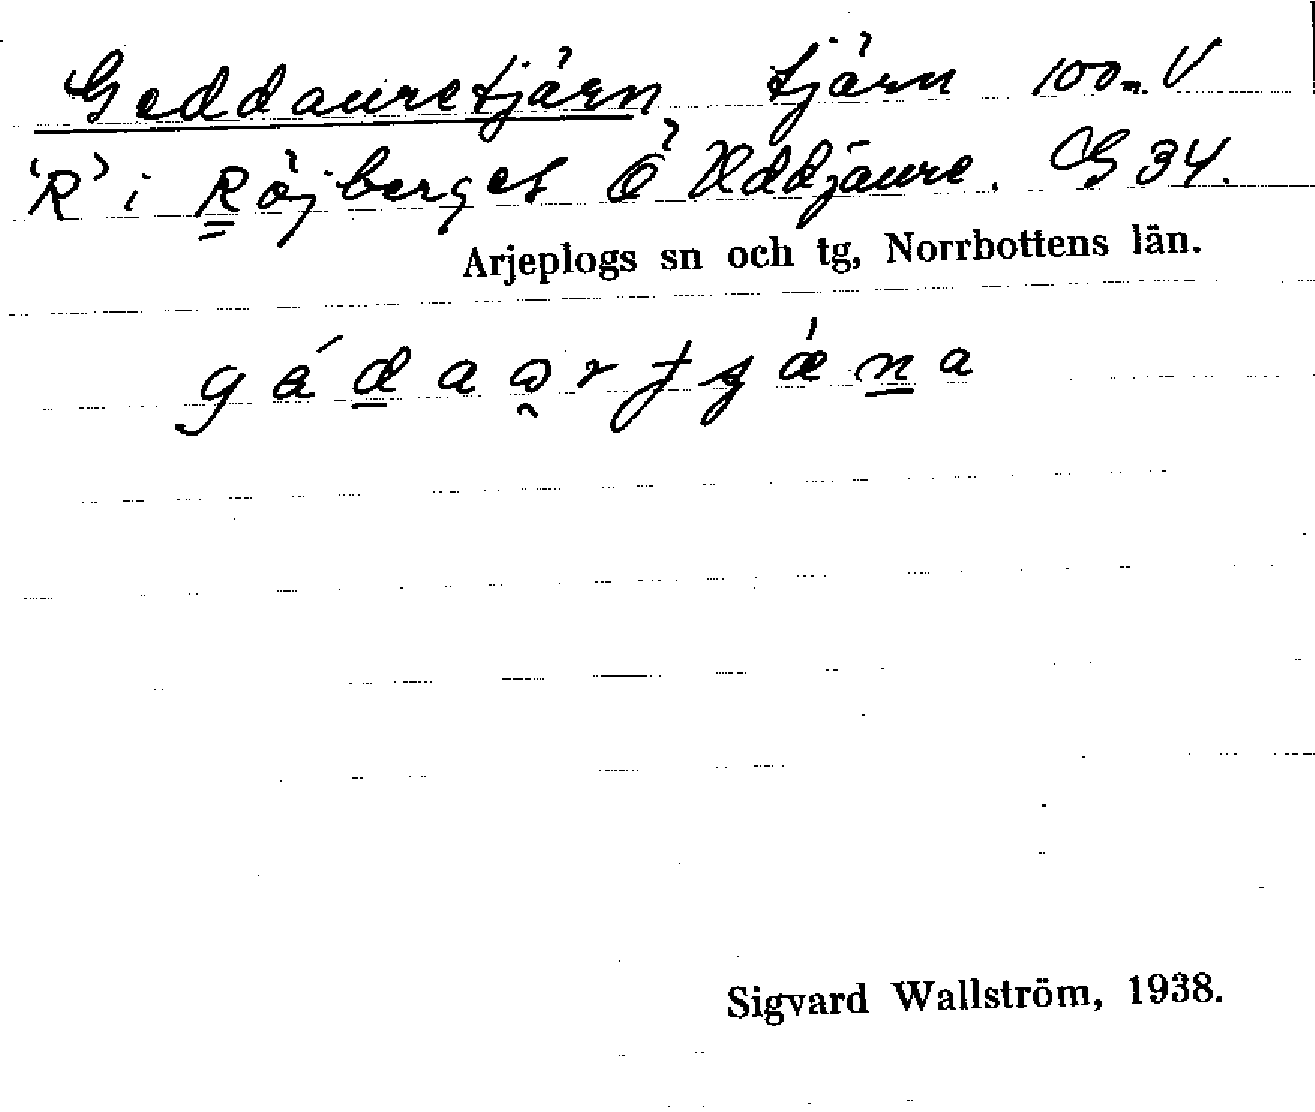 Geddauretjärn, tjärn 100 m V
'R' i Röjberget Ö Uddjaure. G 34.
Arjeplogs sn och tg, Norrbottens län.
Sigvard Wallström, 1938.